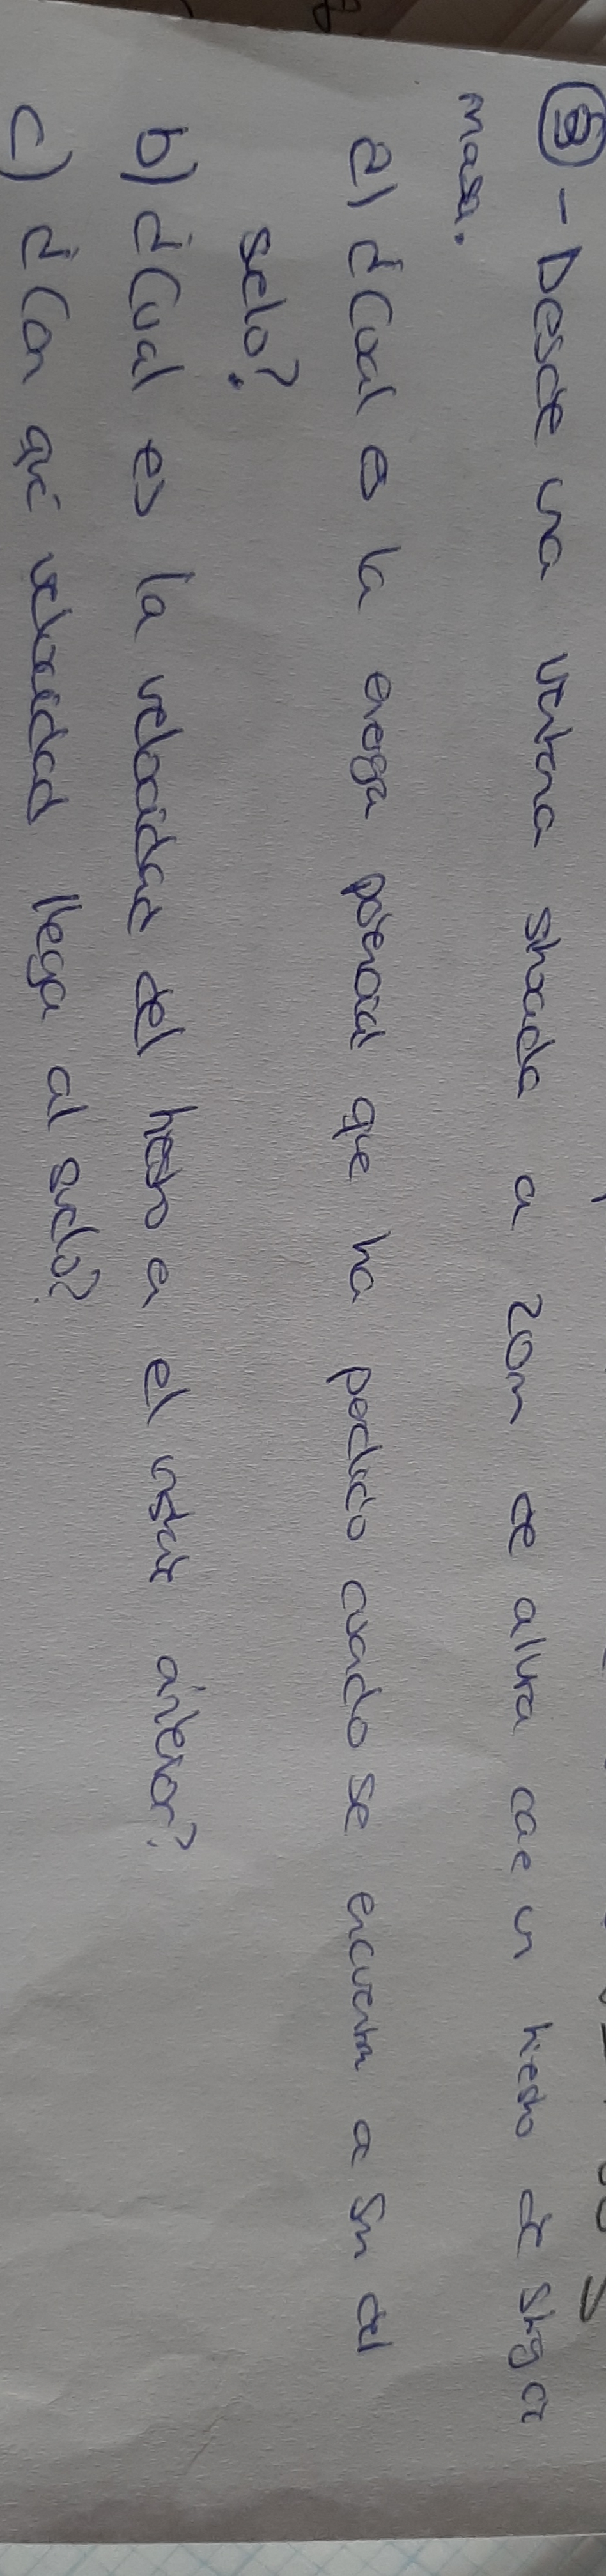 - Desde una ventana situada a 20m de altura cae un tiesto de 5kg de
masa.
a) ¿Cual es la energia potencial que ha perdido cuando se encuentra a 5m del
suelo?
b) ¿Cual es la velocidad del tiesto en el instante anterior?
c) ¿Con qué velocidad llega al suelo?